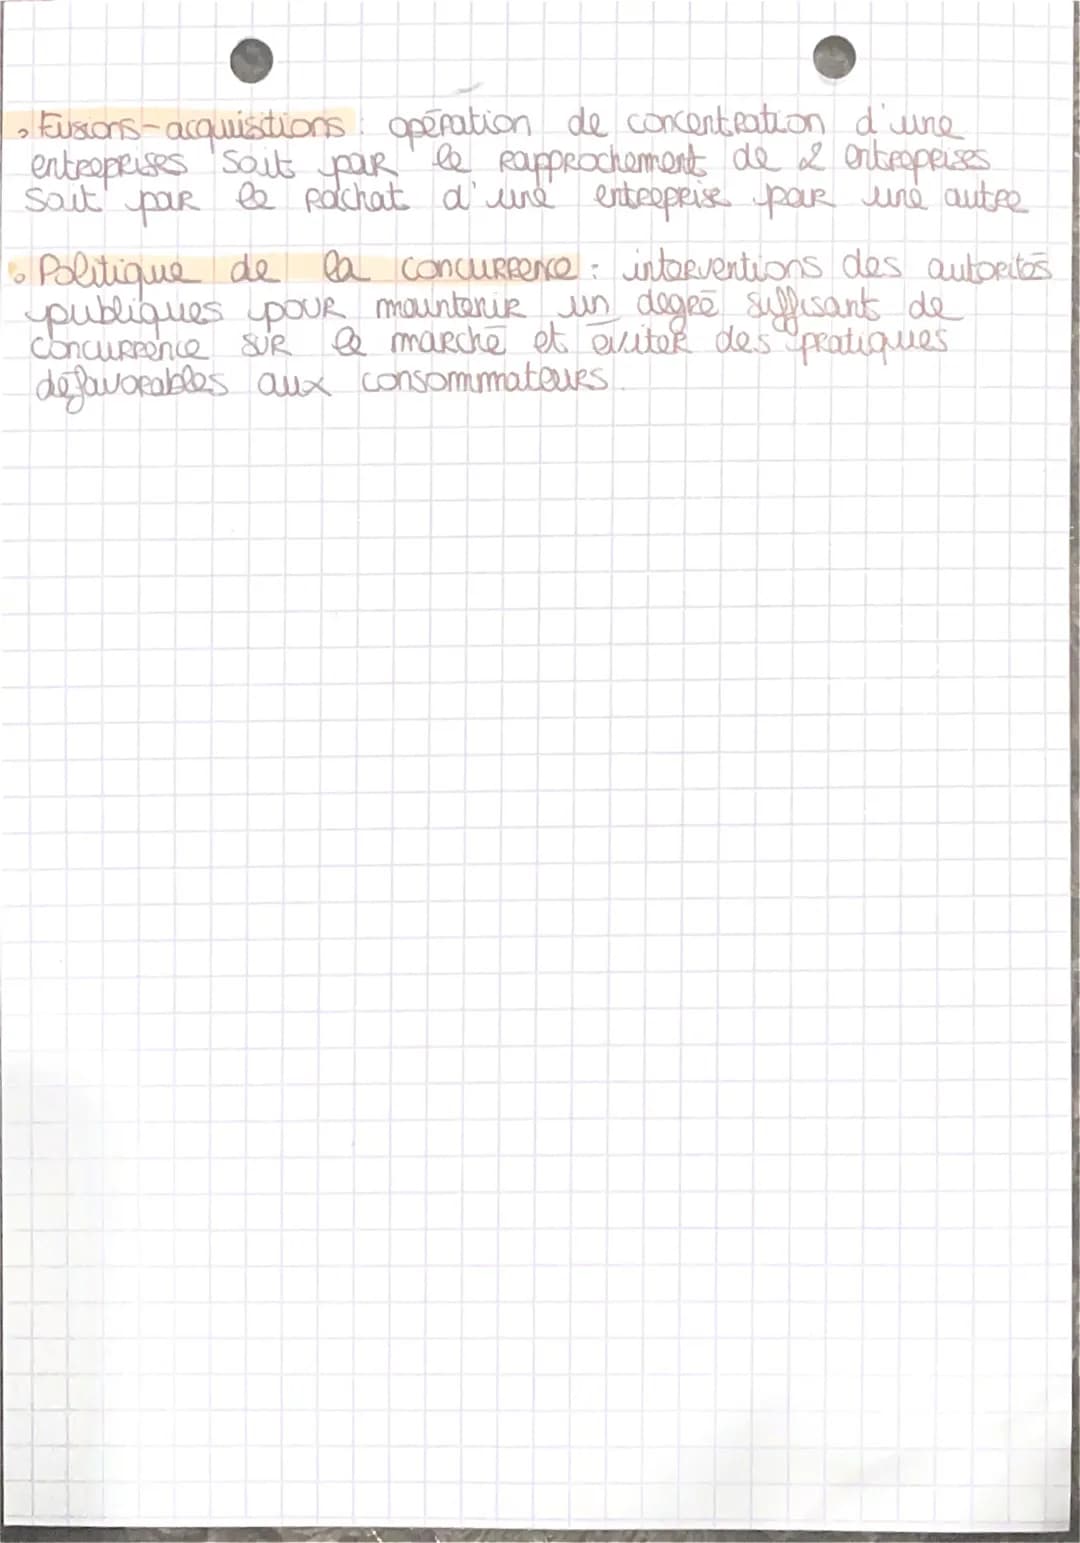 • Fusions-acquisitions : opération de concentration d'une
entreprises soit par le rapprochement de 2 entreprises
soit par le rachat d'une entreprise par une autre
• Politique de la concurrence : interventions des autorités
publiques pour maintenir un degré suffisant de
concurrence sur le marché et éviter des pratiques
défavorables aux consommateurs.